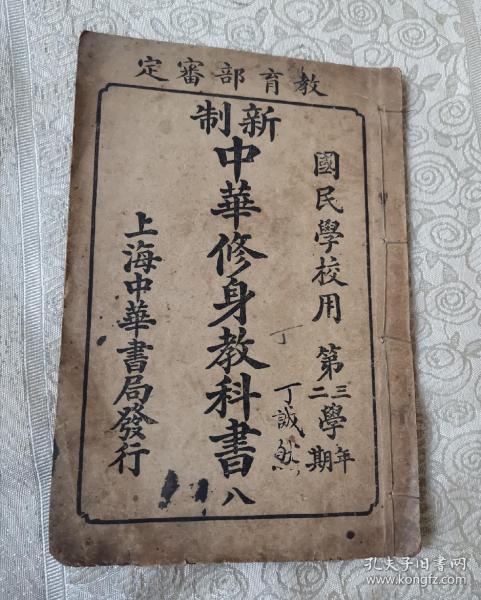 教育部審定
國民學校用
第三學年
第二學期
新制
中華修身教科書
八
上海中華書局發行
丁
丁誠
孔夫子旧书网
www.kongfz.com